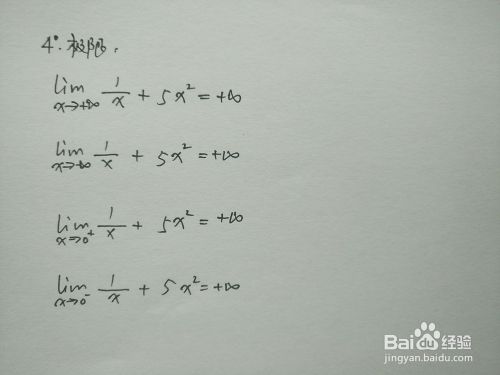 4°. 极限.
lim x→+∞ 1/x + 5x² = +∞
lim x→-∞ 1/x + 5x² = +∞
lim x→0⁺ 1/x + 5x² = +∞
lim x→0⁻ 1/x + 5x² = +∞
Baidu 经验
jingyan.baidu.com